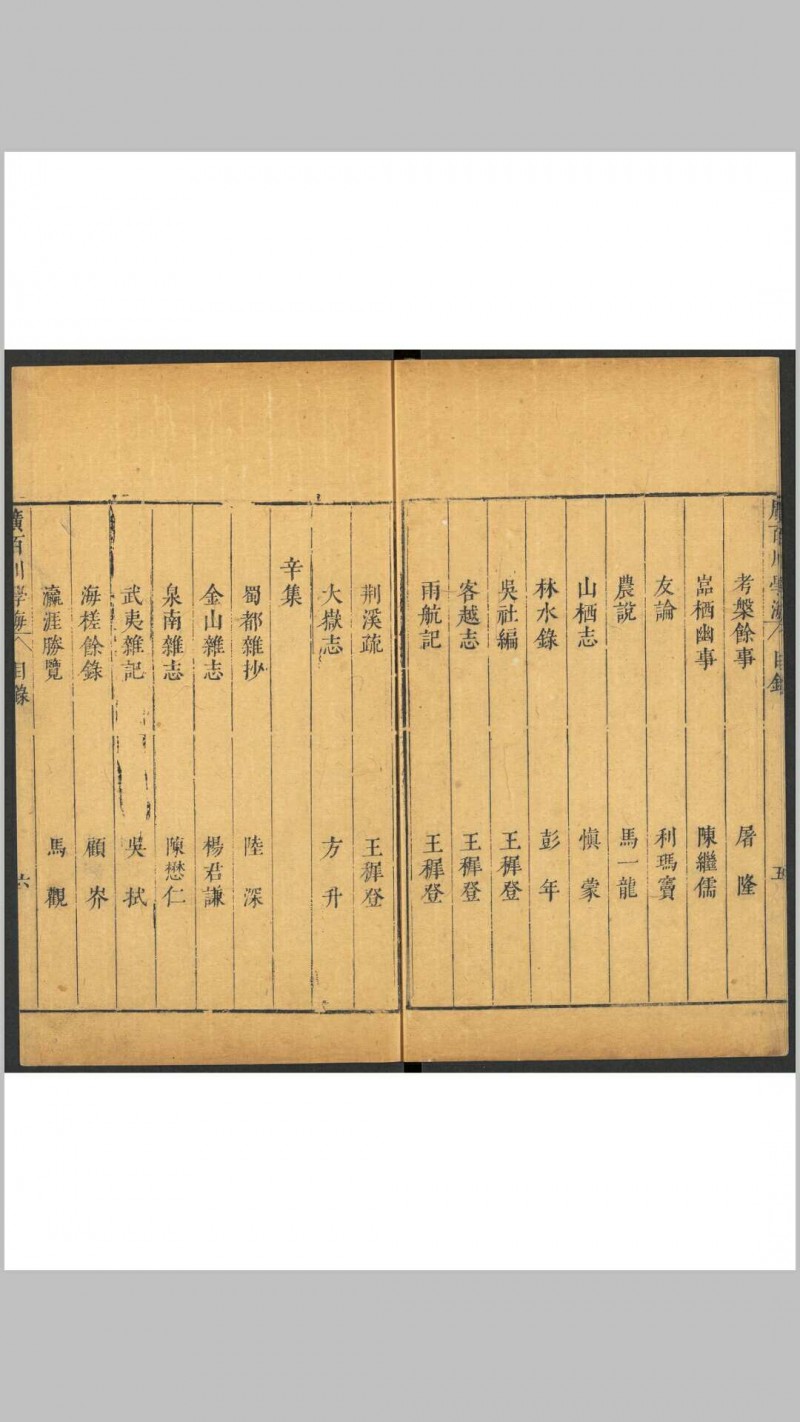 廣百川學海 目錄 五
考槃餘事 屠隆
嵓栖幽事 陳繼儒
友論 利瑪竇
農說 馬一龍
山栖志 愼蒙
林水錄 彭年
吳社編 王穉登
客越志 王穉登
雨航記 王穉登
荆溪疏 王穉登
大嶽志 方升
辛集
蜀都雜抄 陸深
金山雜志 楊君謙
泉南雜志 陳懋仁
武夷雜記 吳拭
海槎餘錄 顧岕
瀛涯勝覽 馬觀
廣百川學海 目錄 六